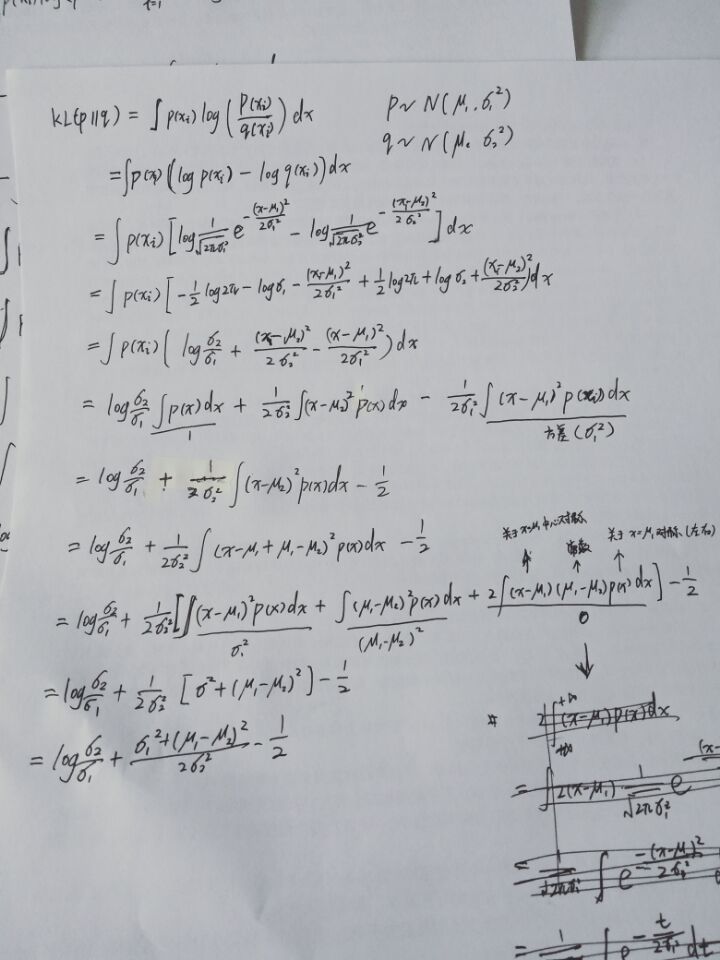 KL(p||q) = ∫ p(xᵢ) log ( p(xᵢ) / q(xᵢ) ) dx    p ~ N(μ₁, σ₁²)
q ~ N(μ₂, σ₂²)
= ∫ p(xᵢ) (log p(xᵢ) - log q(xᵢ)) dx
= ∫ p(xᵢ) [ log 1/√(2πσ₁²) e^(-(x-μ₁)²/2σ₁²) - log 1/√(2πσ₂²) e^(-(xᵢ-μ₂)²/2σ₂²) ] dx
= ∫ p(xᵢ) [ -1/2 log2π - logσ₁ - (xᵢ-μ₁)²/2σ₁² + 1/2 log2π + logσ₂ + (xᵢ-μ₂)²/2σ₂² ) dx
= ∫ p(xᵢ) ( log σ₂/σ₁ + (xᵢ-μ₂)²/2σ₂² - (x-μ₁)²/2σ₁² ) dx
= log σ₂/σ₁ ∫ p(x)dx + 1/2σ₂² ∫ (x-μ₂)² p(x)dx - 1/2σ₁² ∫ (x-μ₁)² p(xᵢ)dx
1    方差(σ₁²)
= log σ₂/σ₁ + 1/2σ₂² ∫ (x-μ₂)² p(x)dx - 1/2
= log σ₂/σ₁ + 1/2σ₂² ∫ (x-μ₁+μ₁-μ₂)² p(x)dx - 1/2
关于x=μ₁中心对称    常数    关于x=μ₁对称(左右)
= log σ₂/σ₁ + 1/2σ₂² [ ∫ (x-μ₁)² p(x)dx + ∫ (μ₁-μ₂)² p(x)dx + 2∫ (x-μ₁)(μ₁-μ₂) p(x)dx ] - 1/2
σ₁²    (μ₁-μ₂)²    0
= log σ₂/σ₁ + 1/2σ₂² [ σ² + (μ₁-μ₂)² ] - 1/2
= log σ₂/σ₁ + (σ₁²+(μ₁-μ₂)²)/2σ₂² - 1/2
2∫ (x-μ₁) p(x) dx
= ∫ 2(x-μ₁) 1/√(2πσ₁²) e